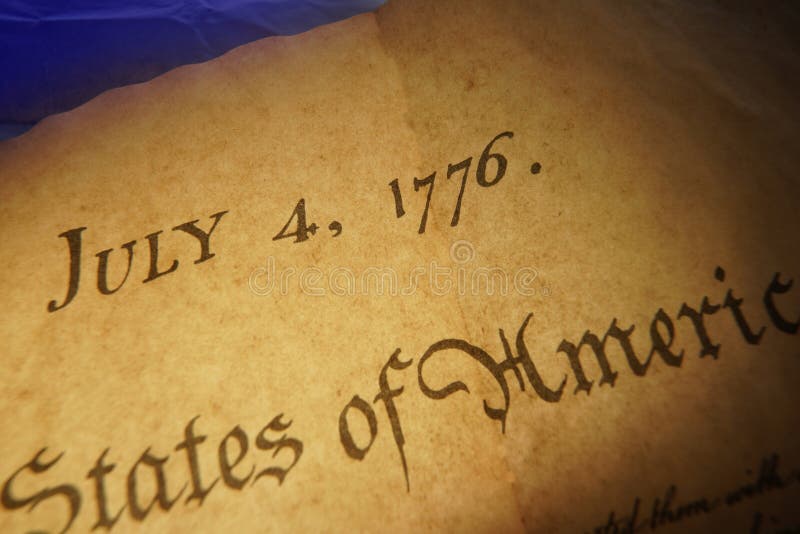 JULY 4, 1776.
States of Americ
them with
dreamstime